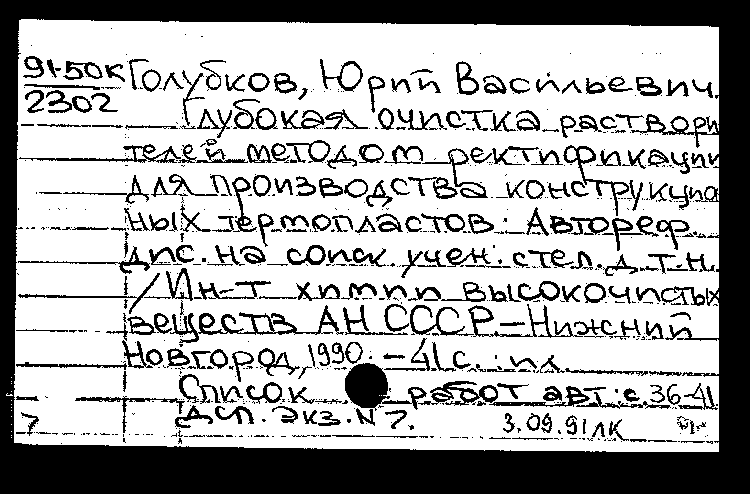 91-50К Голубков, Юрий Васильевич.
2302 Глубокая очистка раствори
телей методом ректификации
для производства конструкцио
ных термопластов: Автореф.
дис. на соиск. учен. степ. д.т.н.
/Ин-т химии высокочистых
веществ АН СССР.-Нижний
Новгород, 1990. -41с.:ил.
Список работ авт.:с.36-41
7 ДСП. Экз.N 7. 3.09.91ЛК